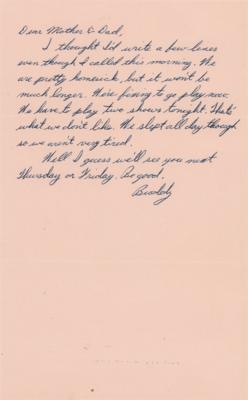 Dear Mother & Dad,
I thought I'd write a few lines
even though I called this morning. We
are pretty homesick, but it won't be
much longer. We're fixing to go play now.
We have to play two shows tonight. That's
what we don't like. We slept all day though
so we aren't very tired.
Well I guess we'll see you next
Thursday or Friday. Be good.